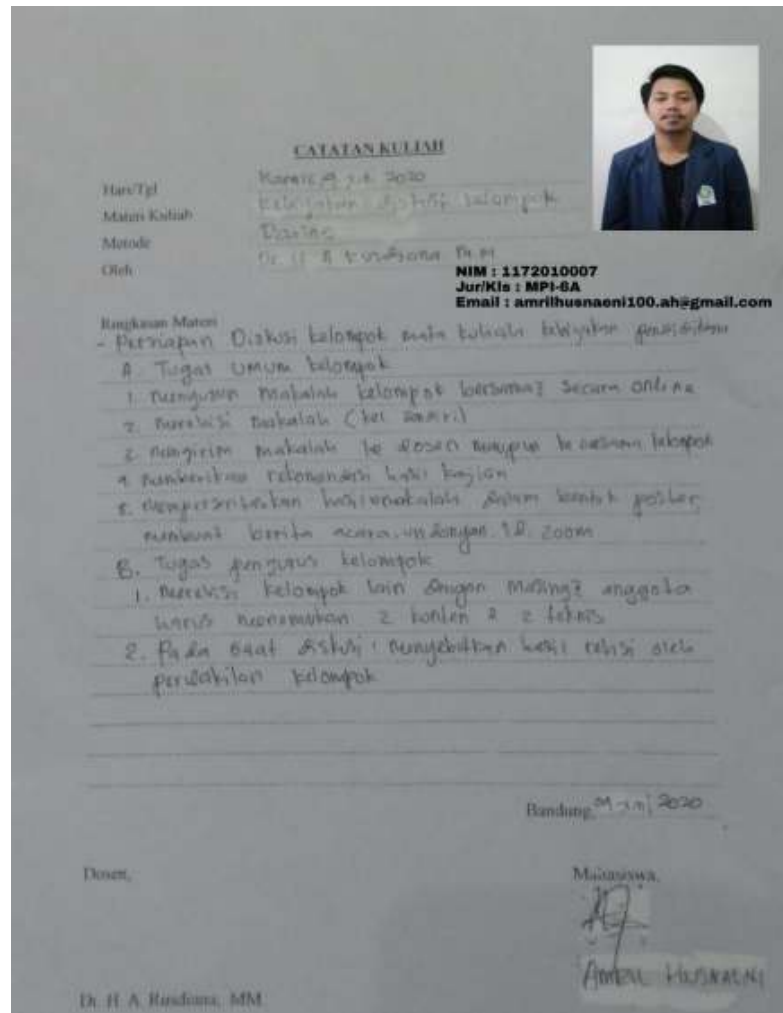 CATATAN KULIAH
Hari/Tgl 2020
Materi Kuliah diskusi kelompok
Metode Daring
Oleh Dr. H. A Rusdiana M.M
NIM : 1172010007
Jur/Kls : MPI-6A
Email : amrilhusnaeni100.ah@gmail.com
Ringkasan Materi
- Persiapan Diskusi kelompok mata kuliah kebijakan pendidikan
A. Tugas umum kelompok
1. menyusun makalah kelompok bersama2 secara online
2. merevisi makalah (kel
3. mengirim makalah ke dosen maupun ke kelompok
4. memberikan rekomendasi hasil kajian
5. mempersentasikan hasil makalah dalam bentuk poster,
membuat berita acara, undangan, zoom
B. Tugas pengurus kelompok
1. Merevisi kelompok lain dengan masing2 anggota
harus menemukan 2 konten & 2 teknis
2. Pada saat diskusi menyebutkan hasil revisi oleh
perwakilan kelompok
Bandung, 2020
Dosen, Mahasiswa,
AMRIL HUSNAENI
Dr. H. A. Rusdiana, MM